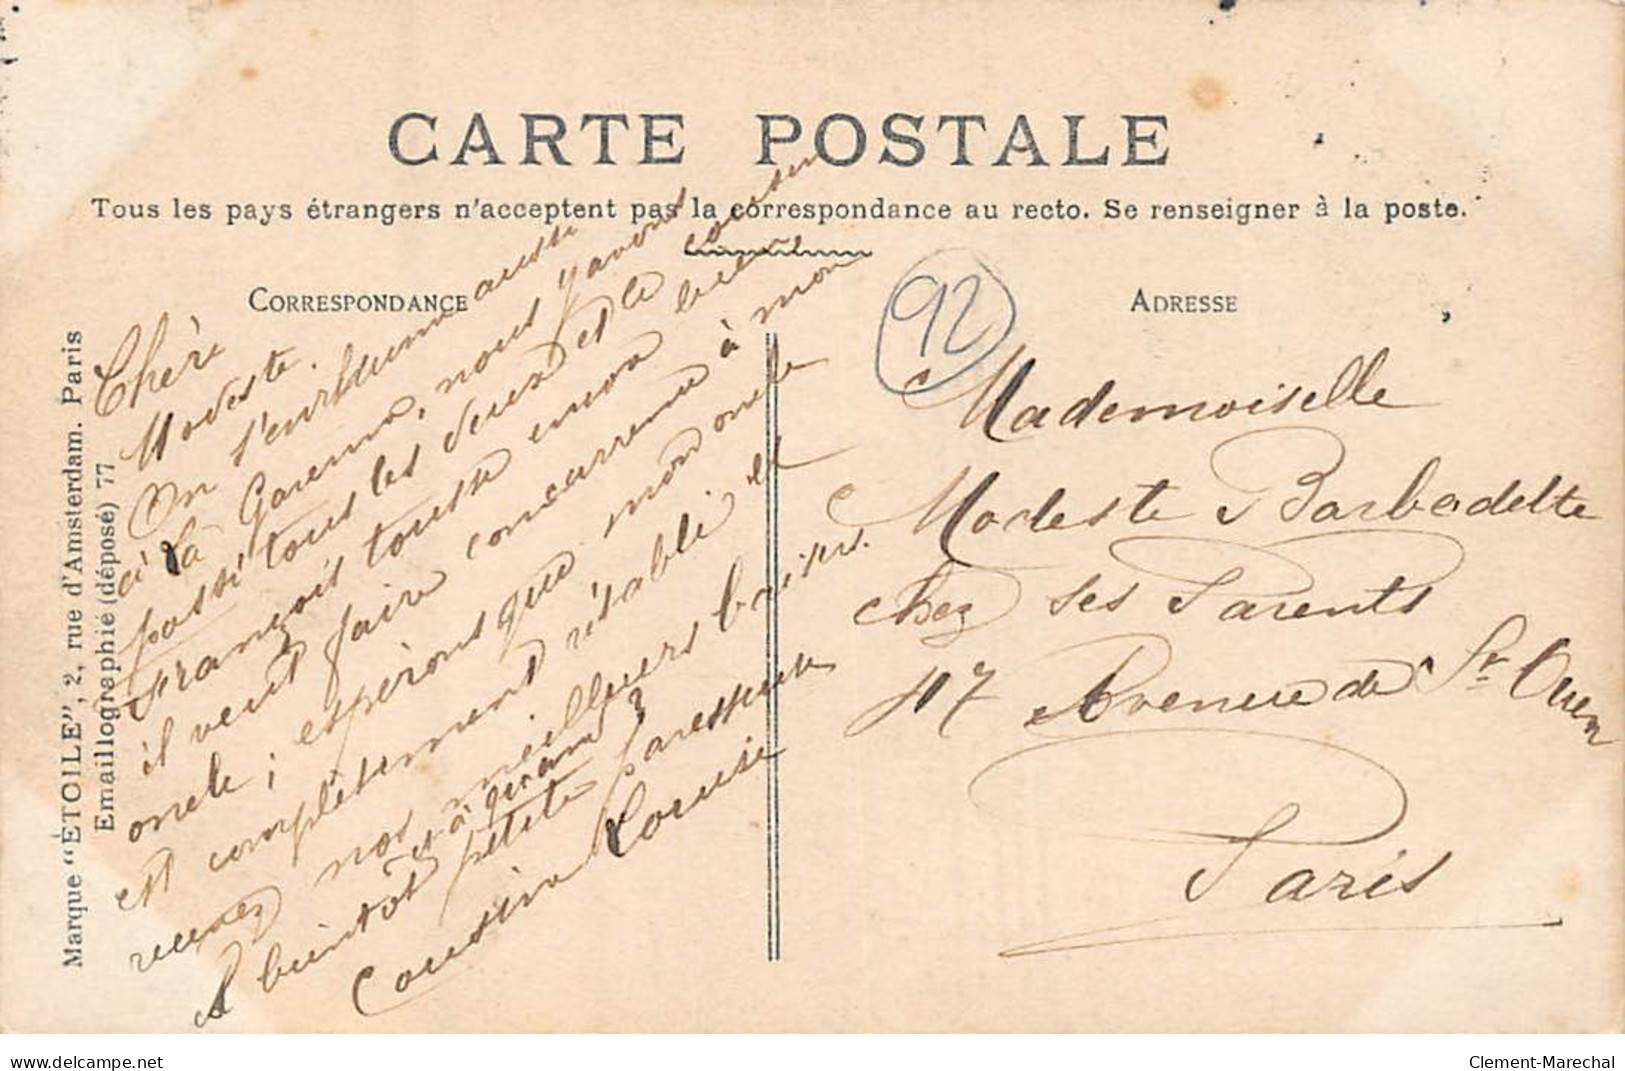 CARTE POSTALE
Tous les pays étrangers n'acceptent pas la correspondance au recto. Se renseigner à la poste.
CORRESPONDANCE
ADRESSE
92
Marque "ÉTOILE", 2, rue d'Amsterdam. Paris
Emaillographié (déposé) 77
Chère
Modeste.
On s'enrhume aussi
à la Garenne, nous y avons
passé tous les deux et le cousin
François tousse encore bien
il veut faire concurrence à mon
oncle ; espérons que mon oncle
est complètement rétabli et
recevez nos meilleurs baisers.
A bientôt et à quand ?
petite paresseuse
Cousine Louise
Mademoiselle
Modeste Barbadette
chez ses Parents
117 Avenue de St Ouen
Paris
Clement-Marechal
delcampe.net